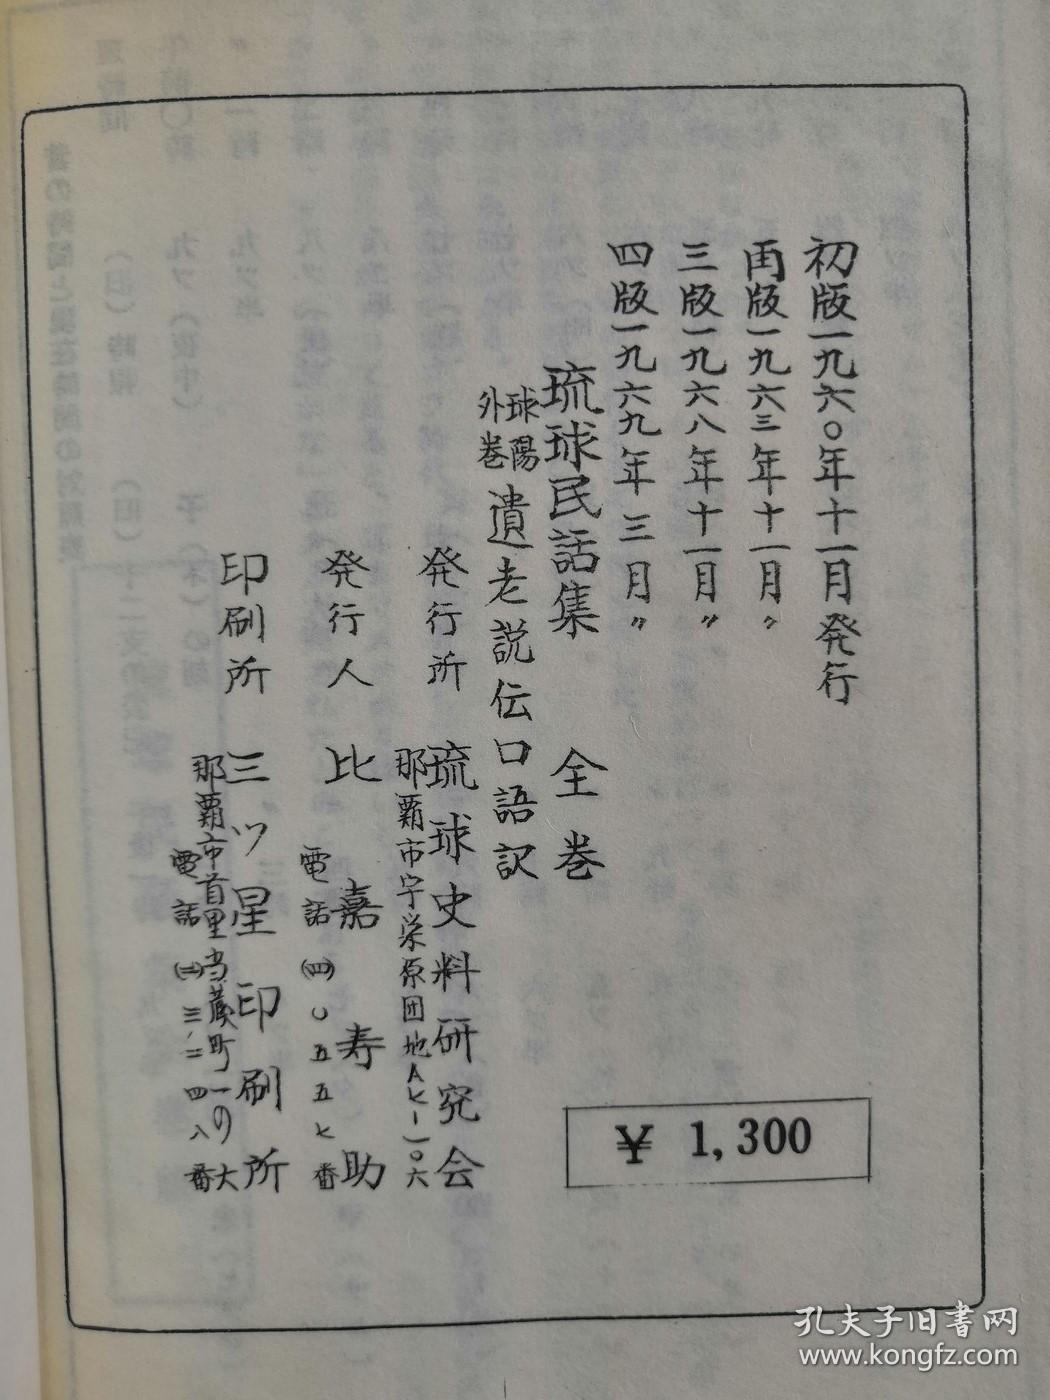 初版一九六〇年十一月発行
再版一九六三年十一月〃
三版一九六八年十一月〃
四版一九六九年三月〃
琉球民話集 全巻
球陽外巻 遺老説伝口語訳
発行所 琉球史料研究会
那覇市字栄原団地AK-一〇六
発行人 比嘉寿助
電話(四)〇五五七番
印刷所 三ツ星印刷所
那覇市首里当蔵町一の大
電話(二)三、二四八番
¥ 1,300
孔夫子旧書网
www.kongfz.com